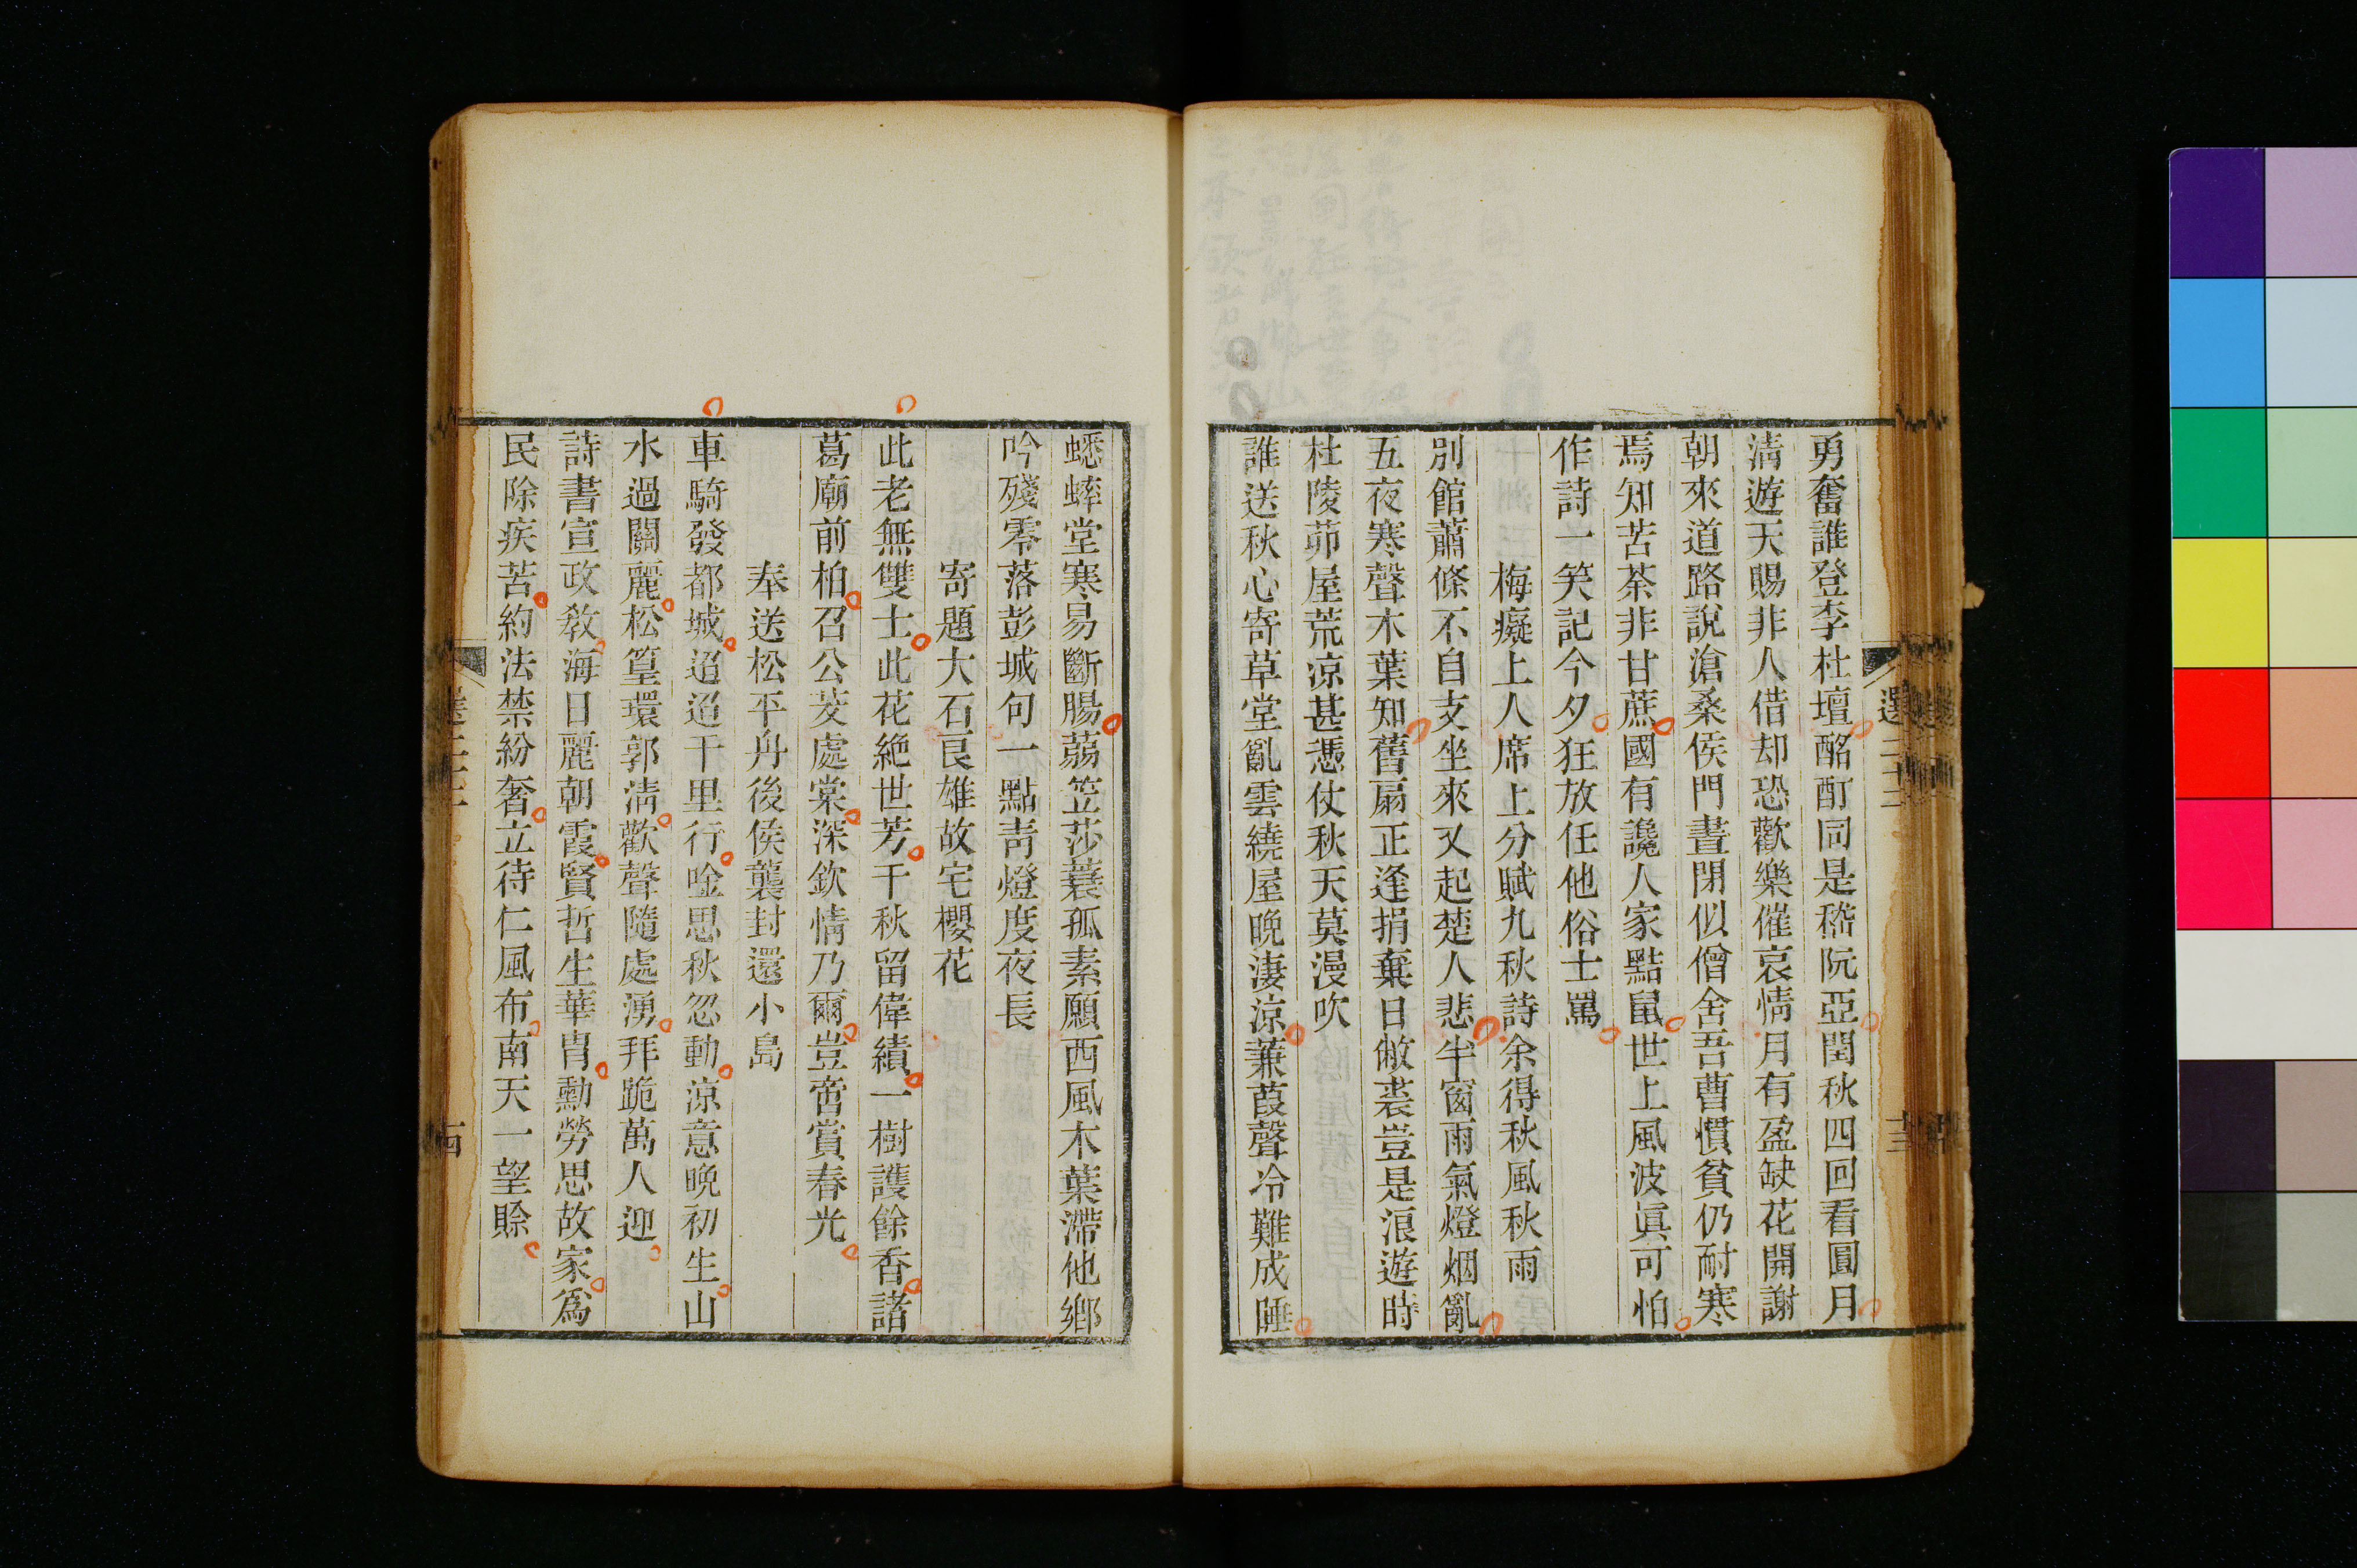 勇奮誰登李杜壇酩酊同是嵇阮亞閏秋四回看圓月
清遊天賜非人借却恐歡樂催哀情月有盈缺花開謝
朝來道路說滄桑侯門晝閉似僧舍吾曹慣貧仍耐寒
焉知苦荼非甘蔗國有讒人家黠鼠世上風波眞可怕
作詩一笑記今夕狂放任他俗士罵
梅癡上人席上分賦九秋詩余得秋風秋雨
別館蕭條不自支坐來又起楚人悲半窗雨氣燈烟亂
五夜寒聲木葉知舊扇正逢捐棄日敝裘豈是浪遊時
杜陵茆屋荒涼甚憑仗秋天莫漫吹
誰送秋心寄草堂亂雲繞屋晚淒涼蒹葭聲冷難成睡
選二十三
十三
蟋蟀堂寒易斷腸蒻笠莎蓑孤素願西風木葉滯他鄉
吟殘零落彭城句一點靑燈度夜長
寄題大石良雄故宅櫻花
此老無雙士此花絶世芳千秋留偉績一樹護餘香諸
葛廟前柏召公茇處棠深欽情乃爾豈啻賞春光
奉送松平丹後侯襲封還小島
車騎發都城迢迢千里行唫思秋忽動涼意晚初生山
水過關麗松篁環郭淸歡聲隨處湧拜跪萬人迎
詩書宣政敎海日麗朝霞賢哲生華冑勳勞思故家爲
民除疾苦約法禁紛奢立待仁風布南天一望賒
十四